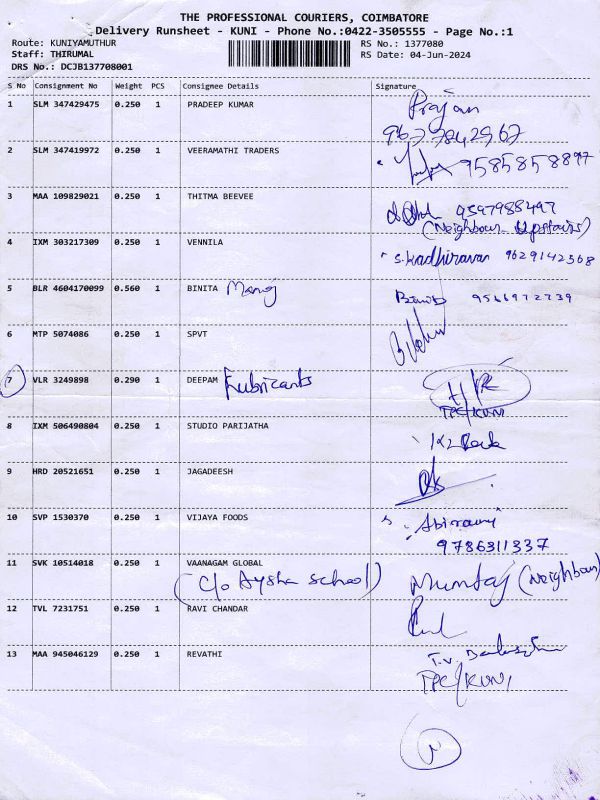 THE PROFESSIONAL COURIERS, COIMBATORE
Delivery Runsheet - KUNI - Phone No.:0422-3505555 - Page No.:1
Route: KUNIYAMUTHUR RS No.: 1377080
Staff: THIRUMAL RS Date: 04-Jun-2024
DRS No.: DCJB137708001
S No Consignment No Weight PCS Consignee Details Signature
1 SLM 347429475 0.250 1 PRADEEP KUMAR Prajan
9677842967
2 SLM 347419972 0.250 1 VEERAMATHI TRADERS 9585858897
3 MAA 109829021 0.250 1 THITMA BEEVEE 9597988497
(Neighbour Upstairs)
4 IXM 303217309 0.250 1 VENNILA S.Kadhiravan 9629142568
5 BLR 4604170099 0.560 1 BINITA Manoj 9566972739
6 MTP 5074086 0.250 1 SPVT
7 VLR 3249898 0.290 1 DEEPAM Lubricants
TPC/KUNI
8 IXM 506490804 0.250 1 STUDIO PARIJATHA
9 HRD 20521651 0.250 1 JAGADEESH
10 SVP 1530370 0.250 1 VIJAYA FOODS Abirami
9786311337
11 SVK 10514018 0.250 1 VAANAGAM GLOBAL
(C/o Aysha School) Mumtaj (Neighbour)
12 TVL 7231751 0.250 1 RAVI CHANDAR
13 MAA 945046129 0.250 1 REVATHI T.V.
TPC/KUNI